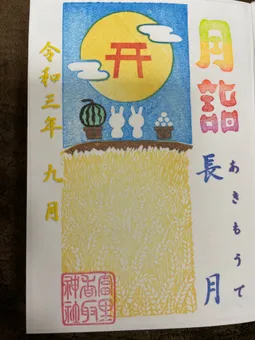 月詣
長月
あきもうで
令和三年 九月
富里
香取
神社